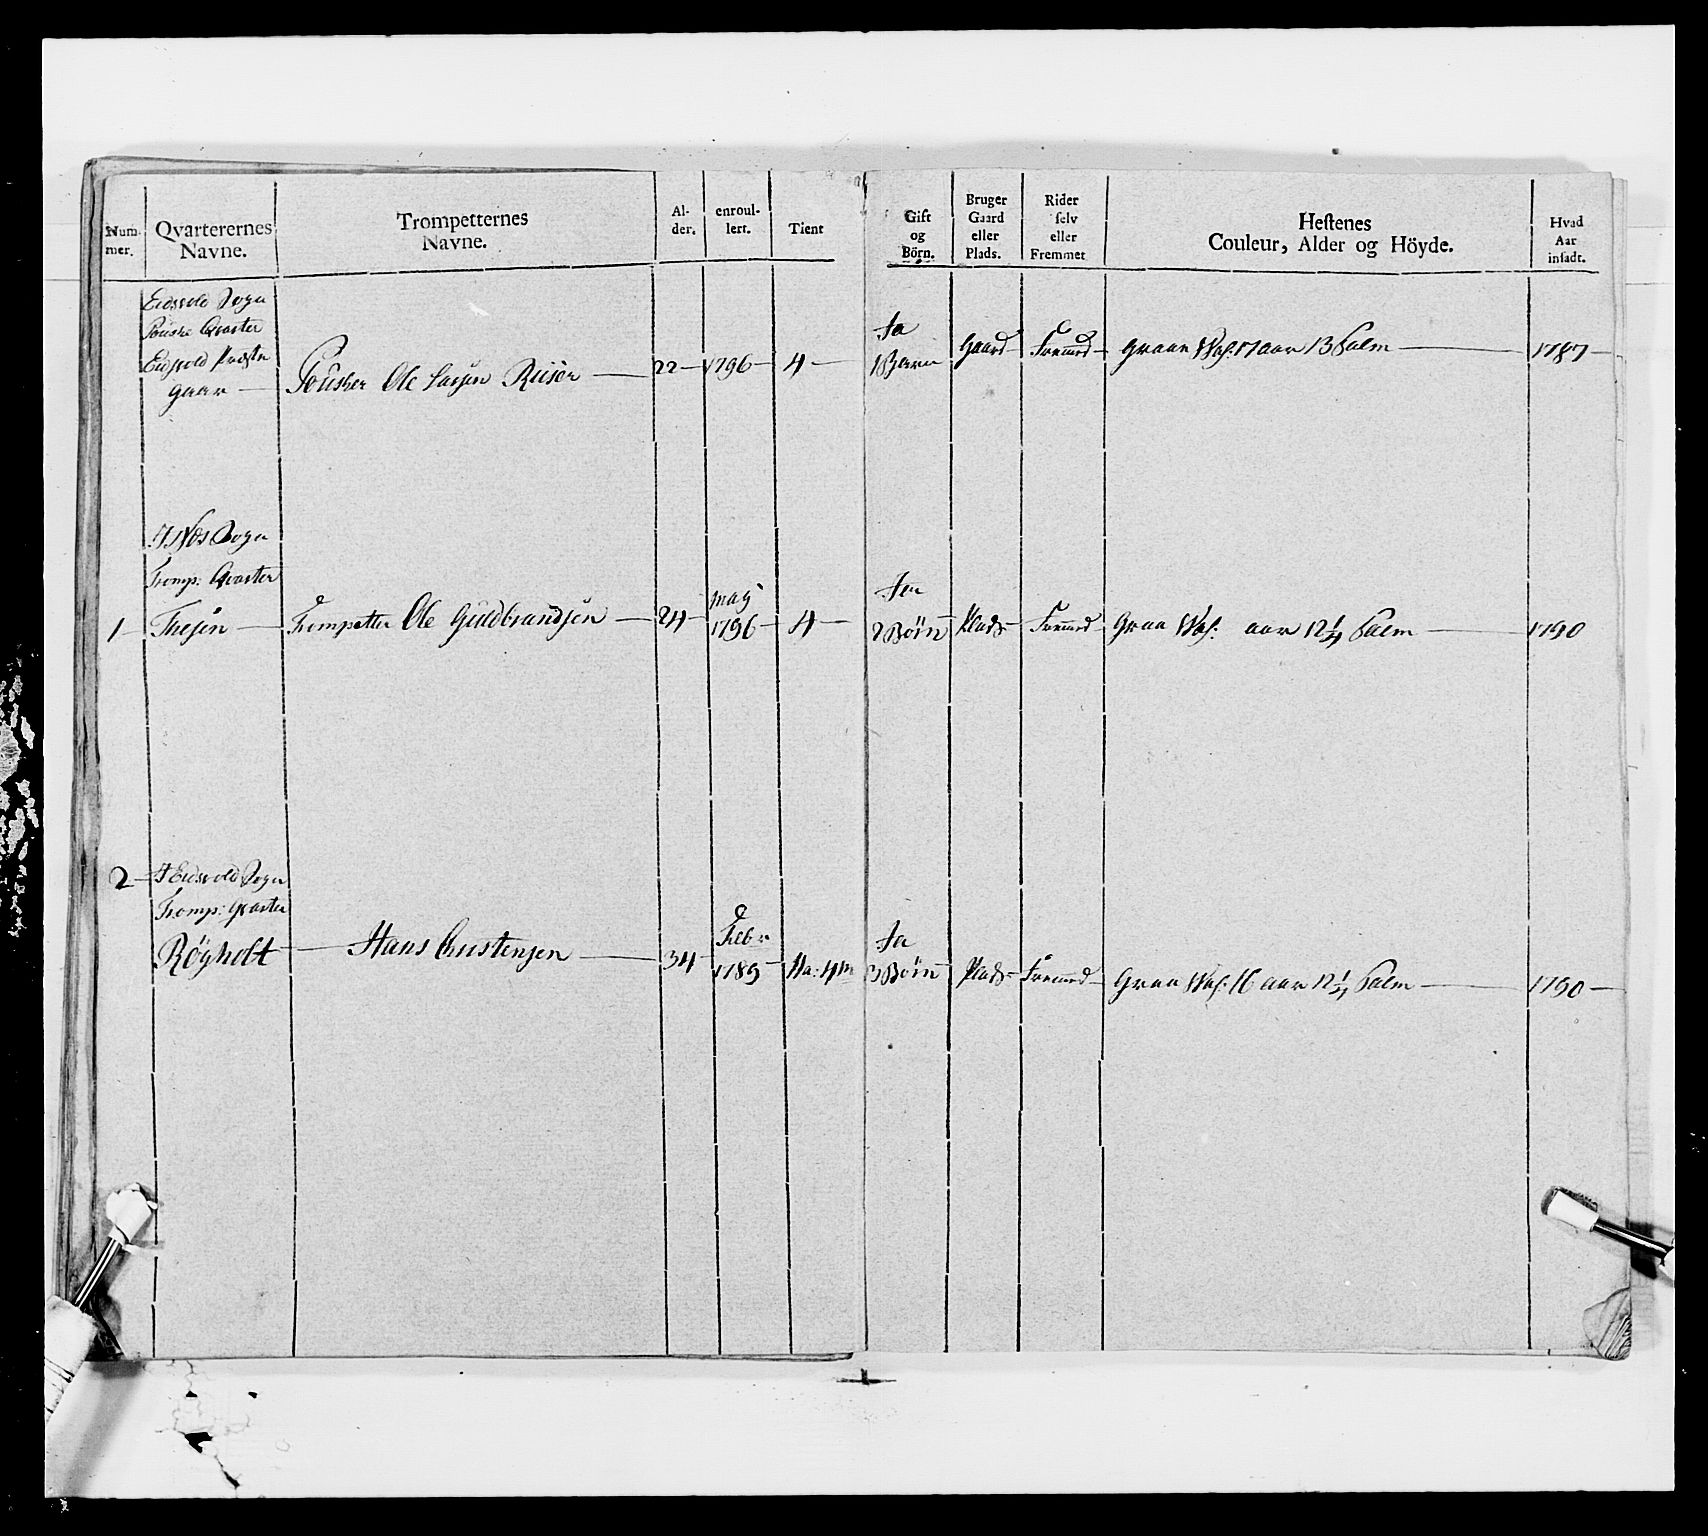 Num-
mer.
Qvarterernes
Navne.
Trompetternes
Navne.
Al-
der.
enroul-
lert.
Tient
Gift
og
Börn.
Bruger
Gaard
eller
Plads.
Rider
ſelv
eller
Fremmet
Heſtenes
Couleur, Alder og Höyde.
Hvad
Aar
indſadt.
Eidsvold Sogn
Qvarter
Eidsvold Præste
gaar
Ole Larsen Riisøe 22 1796 4
Ja
1 Barn
Gaard
Fremmed
Graae Val: 17 aar 13 Palm
1787
I Næs Sogn
Tromp: Qvarter
1 Thesen Trompetter Ole Guldbrandsen 24
Maÿ
1796
4
Ja
2 Børn
Plads
Fremmed
Graa Val: aar 12¼ Palm
1790
2 I Eidsvold Sogn
Tromp: Qvarter
Røÿholt Hans Christensen 34
Febr
1789
Aa: 4 m
Ja
3 Børn
Plads
Fremmed
Graa Val: 16 aar 12¼ Palm
1790